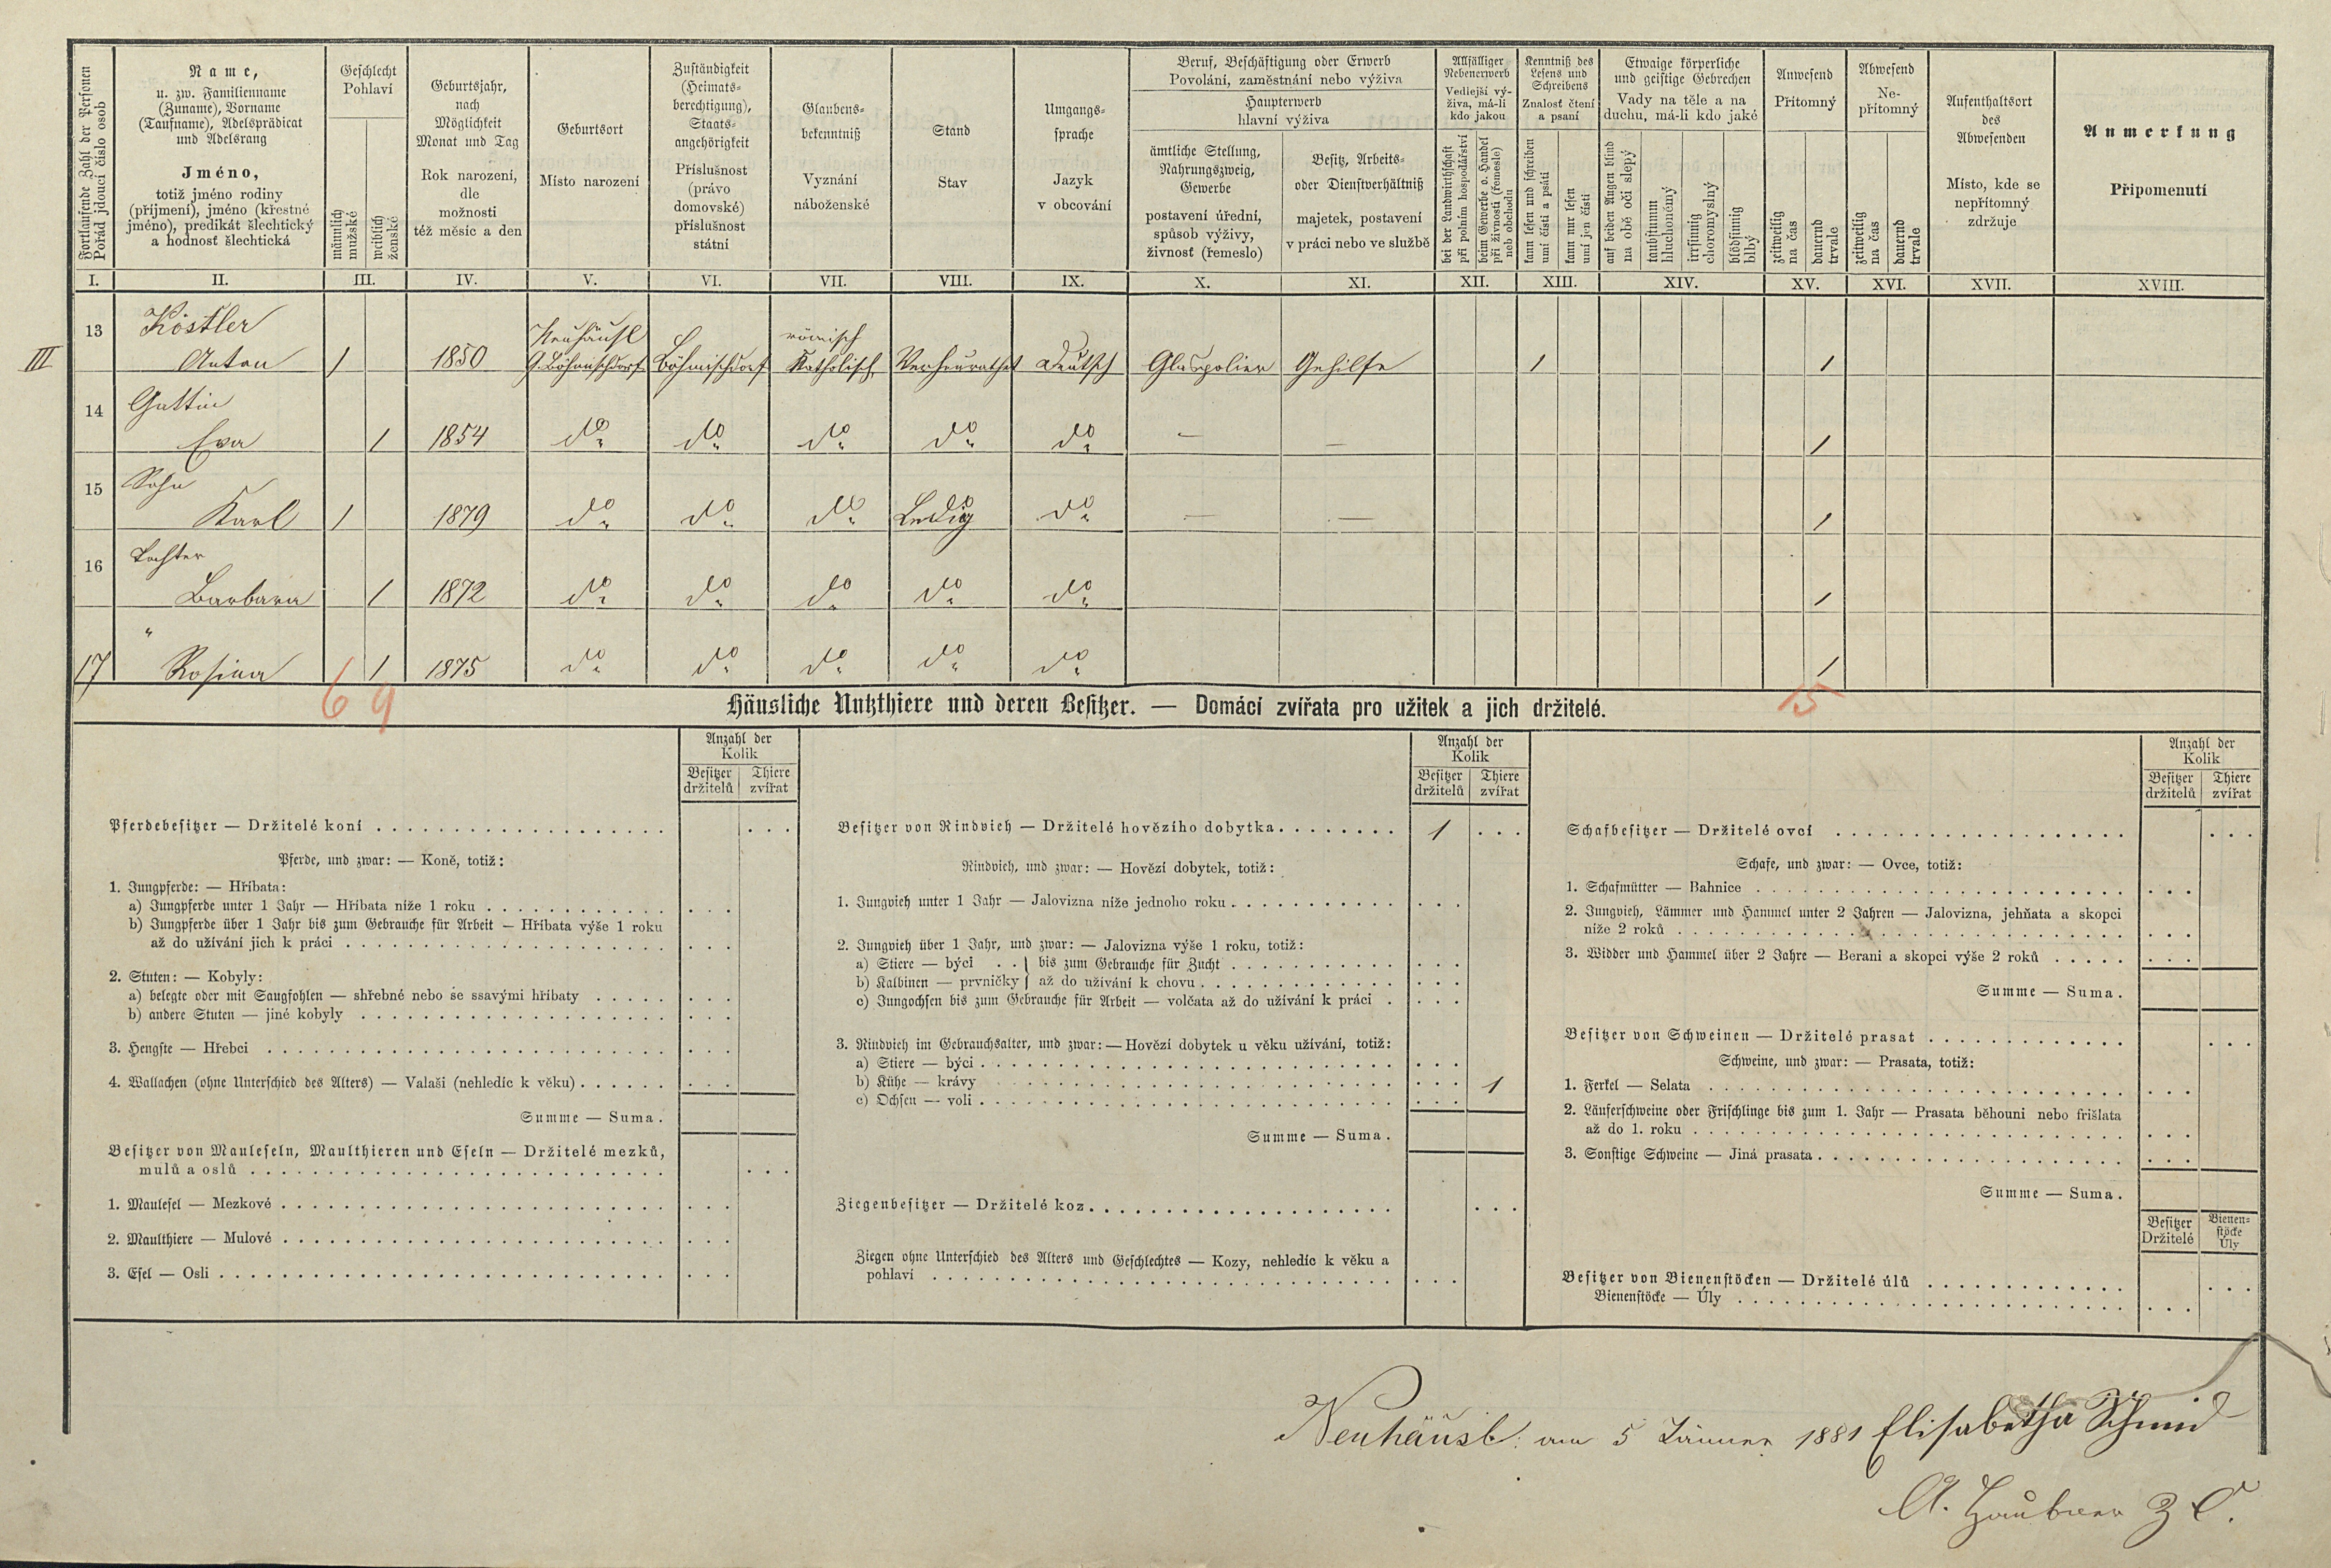 Fortlaufende Zahl der Personen
Pořád jdoucí číslo osob
I.
Name,
u. zw. Familienname
(Zuname), Vorname
(Taufname), Adelsprädicat
und Adelsrang
Jméno,
totiž jméno rodiny
(příjmení), jméno (křestné
jméno), predikát šlechtický
a hodnosť šlechtická
II.
Geschlecht
Pohlaví
männlich
mužské
weiblich
ženské
III.
Geburtsjahr,
nach
Möglichkeit
Monat und Tag
Rok narození,
dle
možnosti
též měsíc a den
IV.
Geburtsort
Místo narození
V.
Zuständigkeit
(Heimats-
berechtigung),
Staats-
angehörigkeit
Příslušnost
(právo
domovské)
příslušnost
státní
VI.
Glaubens-
bekenntniß
Vyznání
náboženské
VII.
Stand
Stav
VIII.
Umgangs-
sprache
Jazyk
v obcování
IX.
Beruf, Beschäftigung oder Erwerb
Povolání, zaměstnání nebo výživa
Haupterwerb
hlavní výživa
ämtliche Stellung,
Nahrungszweig,
Gewerbe
postavení úřední,
spůsob výživy,
živnosť (řemeslo)
X.
Besitz, Arbeits-
oder Dienstverhältniß
majetek, postavení
v práci nebo ve službě
XI.
Allfälliger
Nebenerwerb
Vedlejší vý-
živa, má-li
kdo jakou
bei der Landwirthschaft
při polním hospodářství
beim Gewerbe o. Handel
při živnosti (řemesle)
neb obchodu
XII.
Kenntniß des
Lesens und
Schreibens
Znalosť čtení
a psaní
kann lesen und schreiben
umí čísti a psáti
kann nur lesen
umí jen čísti
XIII.
Etwaige körperliche
und geistige Gebrechen
Vady na těle a na
duchu, má-li kdo jaké
auf beiden Augen blind
na obě oči slepý
taubstumm
hluchoněmý
irrsinnig
choromyslný
blödsinnig
blbý
XIV.
Anwesend
Přítomný
zeitweilig
na čas
dauernd
trvale
XV.
Abwesend
Ne-
přítomný
zeitweilig
na čas
dauernd
trvale
XVI.
Aufenthaltsort
des
Abwesenden
Místo, kde se
nepřítomný
zdržuje
XVII.
Anmerkung
Připomenutí
XVIII.
III
13 Köstler Neuhäusl römisch
Anton 1 1850 G. Böhmischdorf Böhmischdorf Katholisch Verheurathet deutsch Glaspolier Gehilfe 1 1
14 Gattin
Eva 1 1854 do do do do do — — 1
15 Sohn
Karl 1 1879 do do do Ledig do — — 1
16 Tochter
Barbara 1 1872 do do do do do 1
"
17 Rosina 1 1875 do do do do do 1
6 9 15
Häusliche Nutzthiere und deren Besitzer. — Domácí zvířata pro užitek a jich držitelé.
Anzahl der
Kolik
Besitzer Thiere
držitelů zvířat
Pferdebesitzer — Držitelé koní
Pferde, und zwar: — Koně, totiž:
1. Jungpferde: — Hříbata:
a) Jungpferde unter 1 Jahr — Hříbata níže 1 roku
b) Jungpferde über 1 Jahr bis zum Gebrauche für Arbeit — Hříbata výše 1 roku
až do užívání jich k práci
2. Stuten: — Kobyly:
a) belegte oder mit Saugfohlen — shřebné nebo se ssavými hříbaty
b) andere Stuten — jiné kobyly
3. Hengste — Hřebci
4. Wallachen (ohne Unterschied des Alters) — Valaši (nehledíc k věku)
Summe — Suma.
Besitzer von Mauleseln, Maulthieren und Eseln — Držitelé mezků,
mulů a oslů
1. Maulesel — Mezkové
2. Maulthiere — Mulové
3. Esel — Osli
Anzahl der
Kolik
Besitzer Thiere
držitelů zvířat
Besitzer von Rindvieh — Držitelé hovězího dobytka 1
Rindvieh, und zwar: — Hovězí dobytek, totiž:
1. Jungvieh unter 1 Jahr — Jalovizna níže jednoho roku
2. Jungvieh über 1 Jahr, und zwar: — Jalovizna výše 1 roku, totiž:
a) Stiere — býci } bis zum Gebrauche für Zucht
b) Kalbinen — prvničky } až do užívání k chovu
c) Jungochsen bis zum Gebrauche für Arbeit — volčata až do užívání k práci
3. Rindvieh im Gebrauchsalter, und zwar: — Hovězí dobytek u věku užívání, totiž:
a) Stiere — býci
b) Kühe — krávy 1
c) Ochsen — voli
Summe — Suma.
Ziegenbesitzer — Držitelé koz
Ziegen ohne Unterschied des Alters und Geschlechtes — Kozy, nehledíc k věku a
pohlaví
Anzahl der
Kolik
Besitzer Thiere
držitelů zvířat
Schafbesitzer — Držitelé ovcí
Schafe, und zwar: — Ovce, totiž:
1. Schafmütter — Bahnice
2. Jungvieh, Lämmer und Hammel unter 2 Jahren — Jalovizna, jehňata a skopci
níže 2 roků
3. Widder und Hammel über 2 Jahre — Berani a skopci výše 2 roků
Summe — Suma.
Besitzer von Schweinen — Držitelé prasat
Schweine, und zwar: — Prasata, totiž:
1. Ferkel — Selata
2. Läuferschweine oder Frischlinge bis zum 1. Jahr — Prasata běhouni nebo frišlata
až do 1. roku
3. Sonstige Schweine — Jiná prasata
Summe — Suma.
Besitzer Bienen-
Držitelé stöcke
Úly
Besitzer von Bienenstöcken — Držitelé úlů
Bienenstöcke — Úly
Neuhäusl am 5 Jänner 1881 Elisabetha Schmid